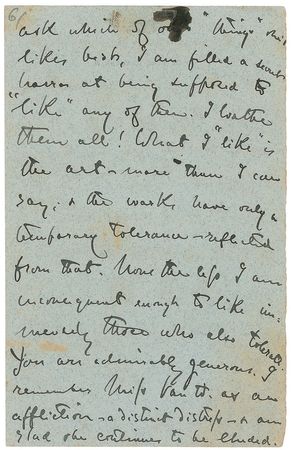 6/
ask which of one's "things" one
likes best, I am filled a secret
horror at being supposed to
"like" any of them. I loathe
them all! What I "like" is
the art — more than I can
say: & the works have only a
temporary tolerance — reflected
from that. None the less I am
inconsequent enough to like im-
mensely those who also tolerate.
You are admirably generous. I
remember Miss Van W. as an
affliction — a distinct distress — & am
glad she continues to be eluded.